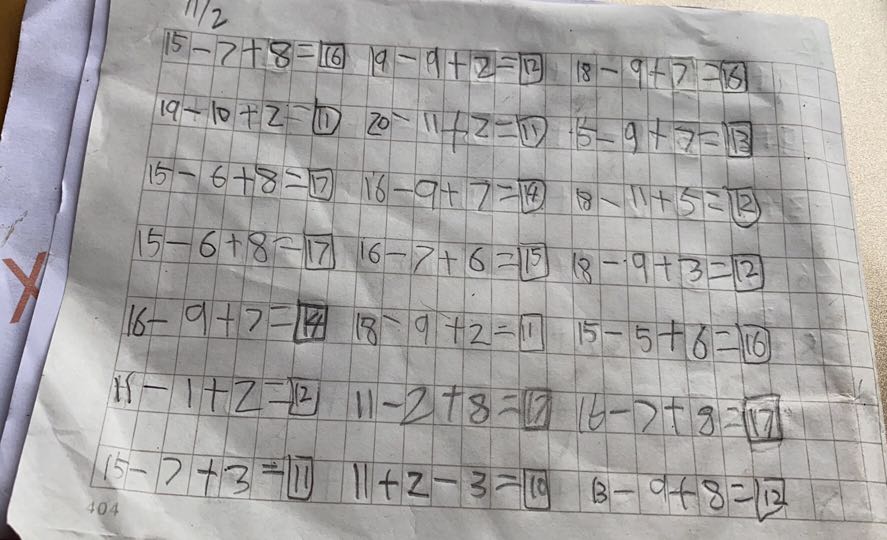 11/2
15-7+8=16 19-9+2=12 18-9+7=16
19-10+2=11 20-11+2=11 15-9+7=13
15-6+8=17 16-9+7=14 18-11+5=12
15-6+8=17 16-7+6=15 18-9+3=12
16-9+7=14 18-9+2=11 15-5+6=16
11-1+2=12 11-2+8=17 16-7+8=17
15-7+3=11 11+2-3=10 13-9+8=12
404